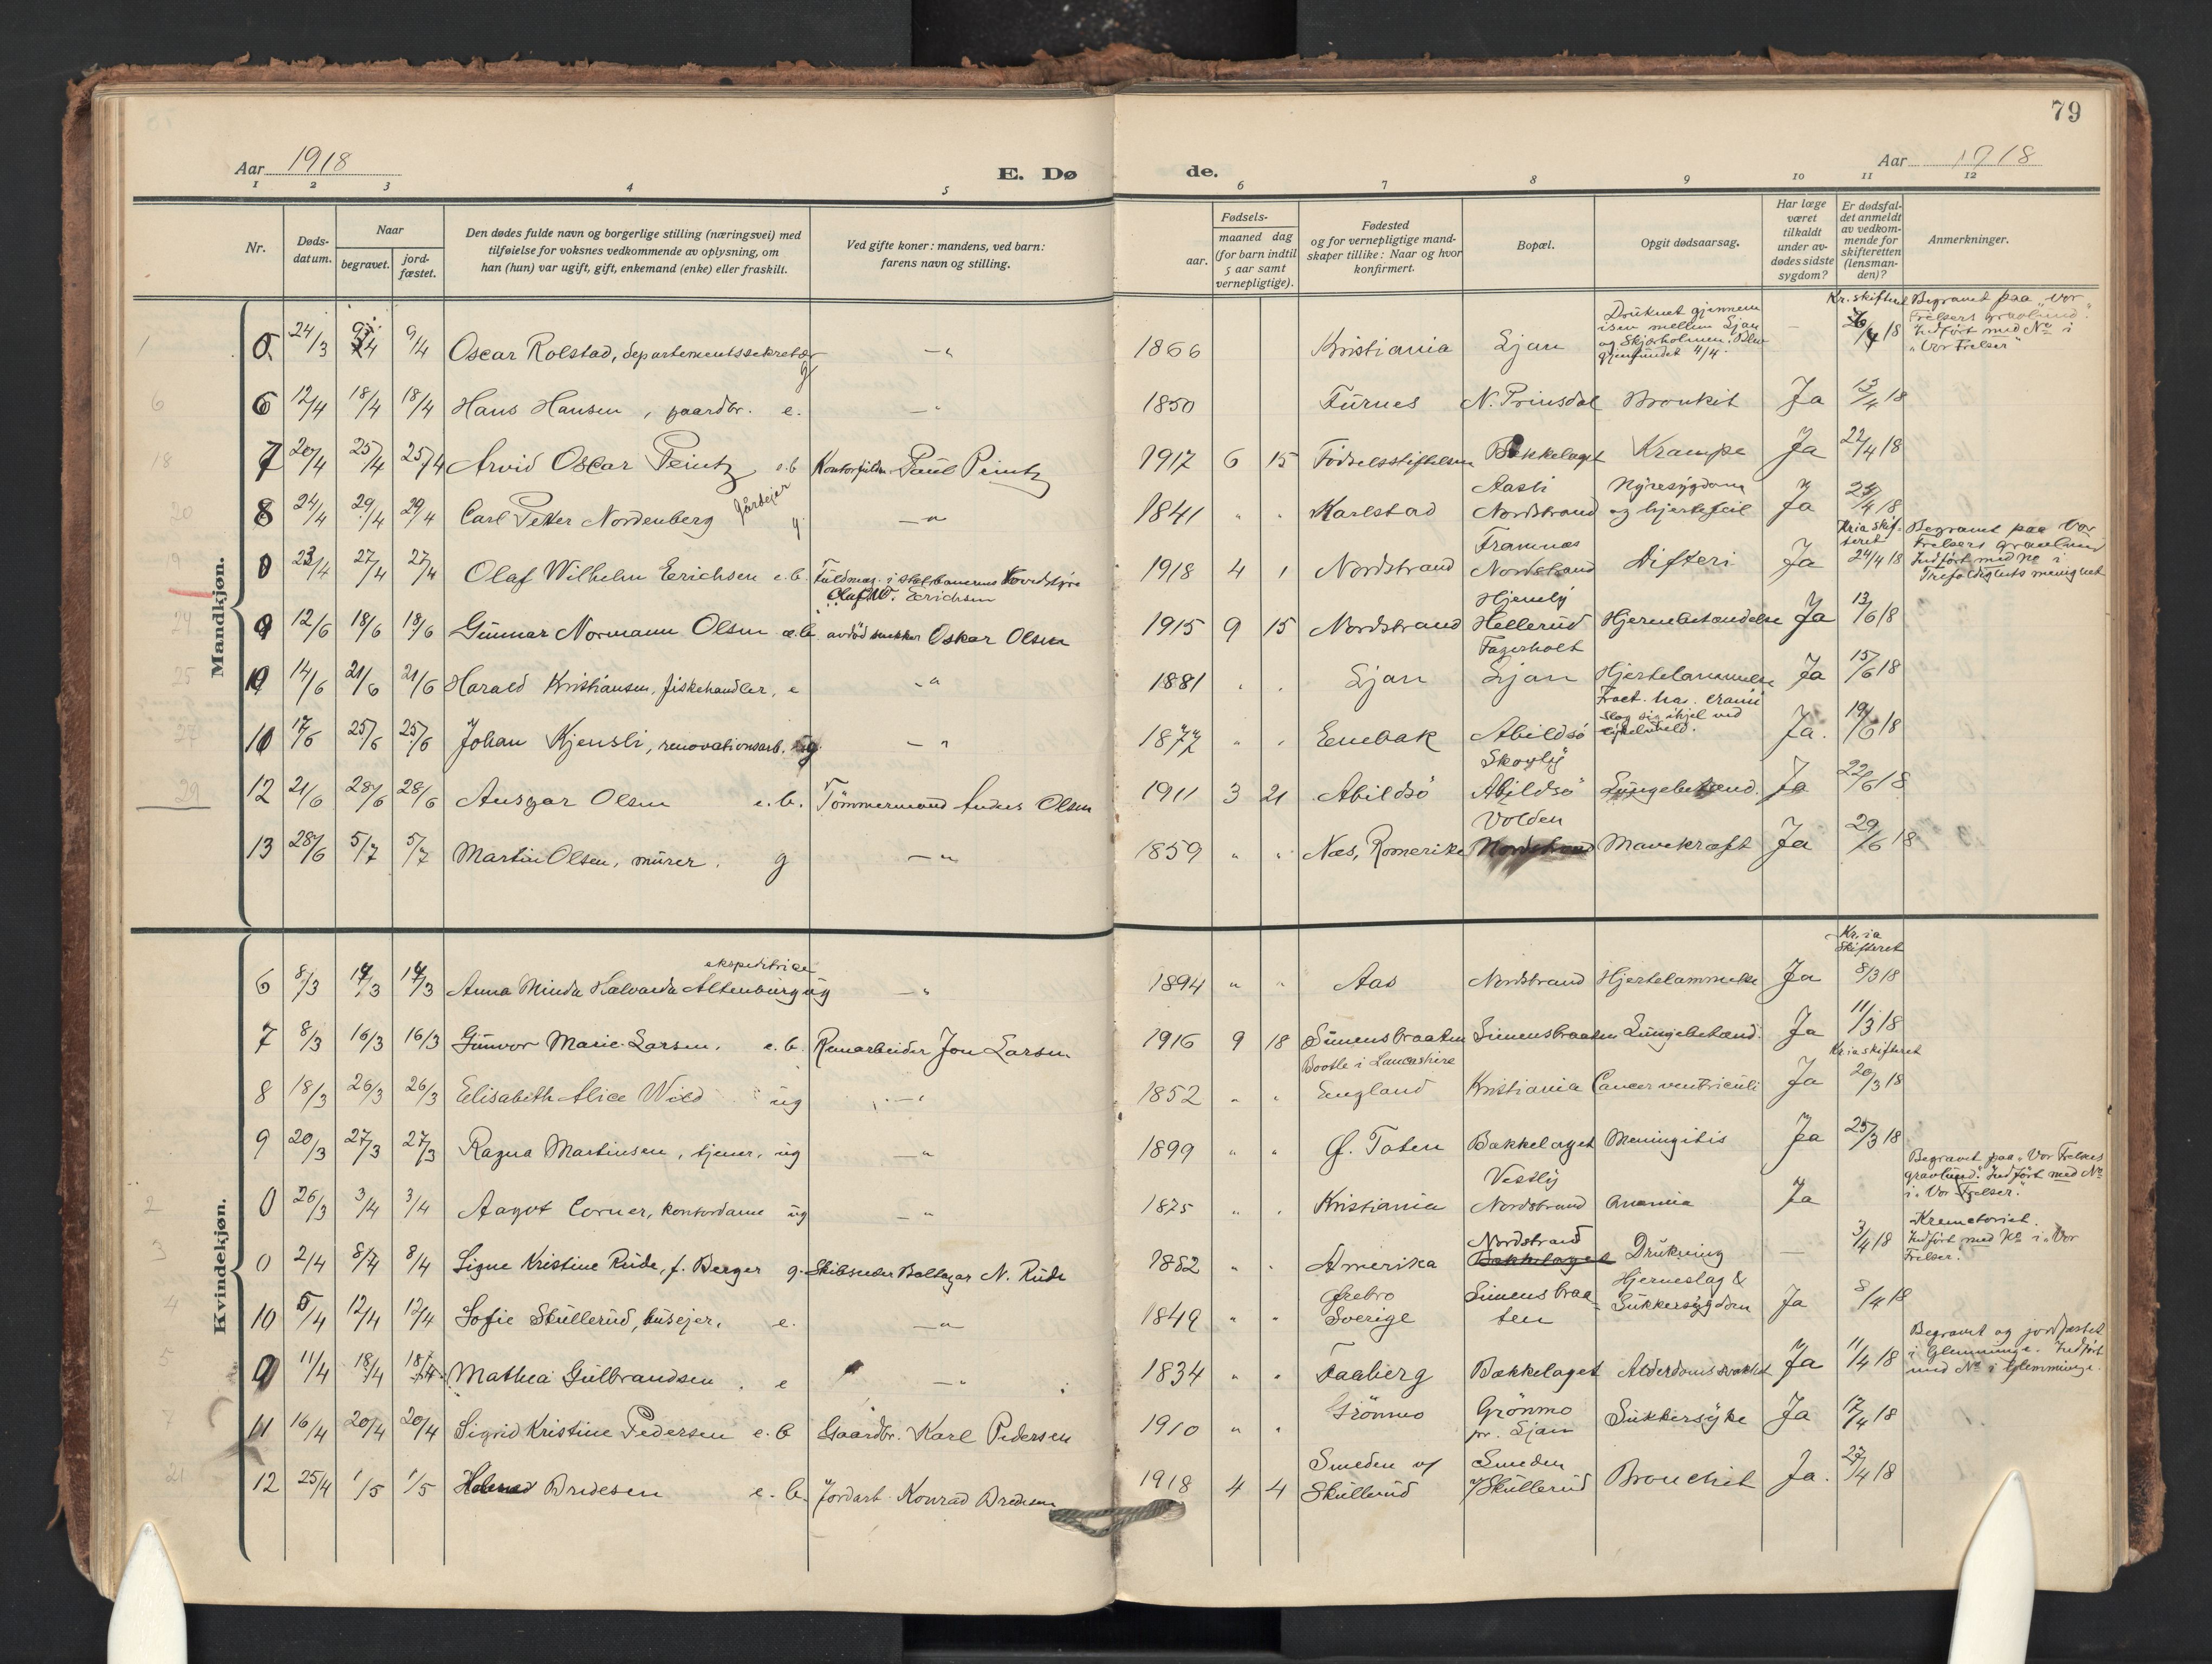 79
Aar 1918
E. Dø
de.
Aar 1918
1 2 3 4 5 6 7 8 9 10 11 12
Nr.
Døds-
datum.
Naar
begravet.
jord-
fæstet.
Den dødes fulde navn og borgerlige stilling (næringsvei) med
tilføielse for voksnes vedkommende av oplysning, om
han (hun) var ugift, gift, enkemand (enke) eller fraskilt.
Ved gifte koner: mandens, ved barn:
farens navn og stilling.
Fødsels-
aar.
maaned dag
(for barn indtil
5 aar samt
vernepligtige).
Fødested
og for vernepligtige mand-
skaper tillike: Naar og hvor
konfirmert.
Bopæl.
Opgit dødsaarsag.
Har læge
været
tilkaldt
under av-
dødes sidste
sygdom?
Er dødsfal-
det anmeldt
av vedkom-
mende for
skifteretten
(lensman-
den)?
Anmerkninger.
Mandkjøn.
24/3 9/4 Oscar Rolstad, departementssekretær g — " 1866 Kristiania Ljan Druknet gjennem isen mellem Ljan og Skjærholmen. Blev gjenfundet 4/4. — Kr. skifteret 18 Begravet paa "Vor Frelsers gravlund". Indført med No i "Vor Frelser"
6 12/4 18/4 18/4 Hans Hansen, gaardbr. e. — " 1850 Furnes N. Prinsdal Bronkit Ja 13/4 18
7 20/4 25/4 25/4 Arvid Oscar Peintz e.b. Kontorfuldm. Paul Peintz 1917 6 15 Fødselsstiftelsen Bekkelaget Krampe Ja 22/4 18
8 24/4 29/4 29/4 Carl Petter Nordenberg Gårdejer g. — " 1841 " " Karlstad Aasli Nordstrand Nyresygdom og hjertefeil Ja 4 18
0 23/4 27/4 27/4 Olaf Wilhelm Erichsen e.b. Fuldmæg. i Statsbanernes Hovedstyre Olaf W. Erichsen 1918 4 1 Nordstrand Framnæs Nordstrand Difteri Ja Kria skifteret 24/4 18 Begravet paa Vor Frelsers gravlund Indført med No i Trefoldighets menighet
9 12/6 18/6 18/6 Gunnar Normann Olsen e.b. avdød snekker Oskar Olsen 1915 9 15 Nordstrand Hjemly Hellerud Hjernebetændelse Ja 13/6 18
10 14/6 21/6 21/6 Harald Kristiansen, fiskehandler, e — " 1881 " " Ljan Fagerholt Ljan Hjertelammelse Ja 15/6 18
11 17/6 25/6 25/6 Johan Kjensli, renovationsarb. ug. — " 1877 " " Enebak Abildsø Fract. bas. cranii Slog sig ihjel ved Ja. 19/6 18
12 21/6 28/6 28/6 Ansgar Olsen e.b. Tømmermand Anders Olsen 1911 3 21 Abildsø Skovly Abildsø Lungebetænd. Ja 22/6 18
13 28/6 5/7 5/7 Martin Olsen, murer. g — " 1859 " " Næs, Romerike Volden Nordstrand Mavekræft Ja 29/6 18
Kvindekjøn.
6 8/3 14/3 14/3 Anna Minda Halvarda Altenburg ekspeditrice ug — " 1894 " " Aas Nordstrand Hjertelammelse Ja Kr.ia Skifteret 8/3 18
7 8/3 16/3 16/3 Gunvor Marie Larsen. e.b. Renarbeider Jon Larsen 1916 9 18 Simensbraaten Simensbraaten Lungebetænd. Ja 11/3 18
8 18/3 26/3 26/3 Elisabeth Alice Wild ug — " 1852 " " Bootle i Lancashire England Kristiania Cancer ventriculi Ja Kria skifteret 20/3 18
9 20/3 27/3 27/3 Ragna Martinsen, tjener. ug — " 1899 " " Ø. Toten Bækkelaget Meningitis Ja 25/3 18
0 26/3 3/4 3/4 Aagot Corner, kontordame ug — " 1875 " " Kristiania Vestly Nordstrand Anæmia Ja Begravet paa "Vor Frelsers gravlund". Indført med No i "Vor Frelser".
0 2/4 8/4 8/4 Signe Kristine Rude, f. Berger g. Skibsreder Baltazar N. Rude 1882 " " Amerika Nordstrand Bækkelaget Drukning — 3/4 18 Krematoriet. Indført med No i "Vor Frelser".
10 5/4 12/4 12/4 Sofie Skullerud, husejer. e. — " 1849 " " Ørebro Sverige Simensbraaten Hjerneslag & Sukkersygdom Ja 8/4 18
0 11/4 18/4 18/4 Mathea Gulbrandsen. e — " 1834 " " Faaberg Bækkelaget Alderdomssvakhet Ja 11/4 18 Begravet og jordfæstet i Glemminge. Indført med No i Glemminge.
11 16/4 20/4 20/4 Sigrid Kristine Pedersen e.b Gaardbr. Karl Pedersen 1910 " " Grønmo Grønmo pr. Ljan Sukkersyke Ja 17/4 18
12 25/4 1/5 1/5 Bredesen e.b. Jordarb. Konrad Bredesen 1918 4 4 Smeden u/ Skullerud Smeden u/Skullerud Bronchit Ja. 27/4 18